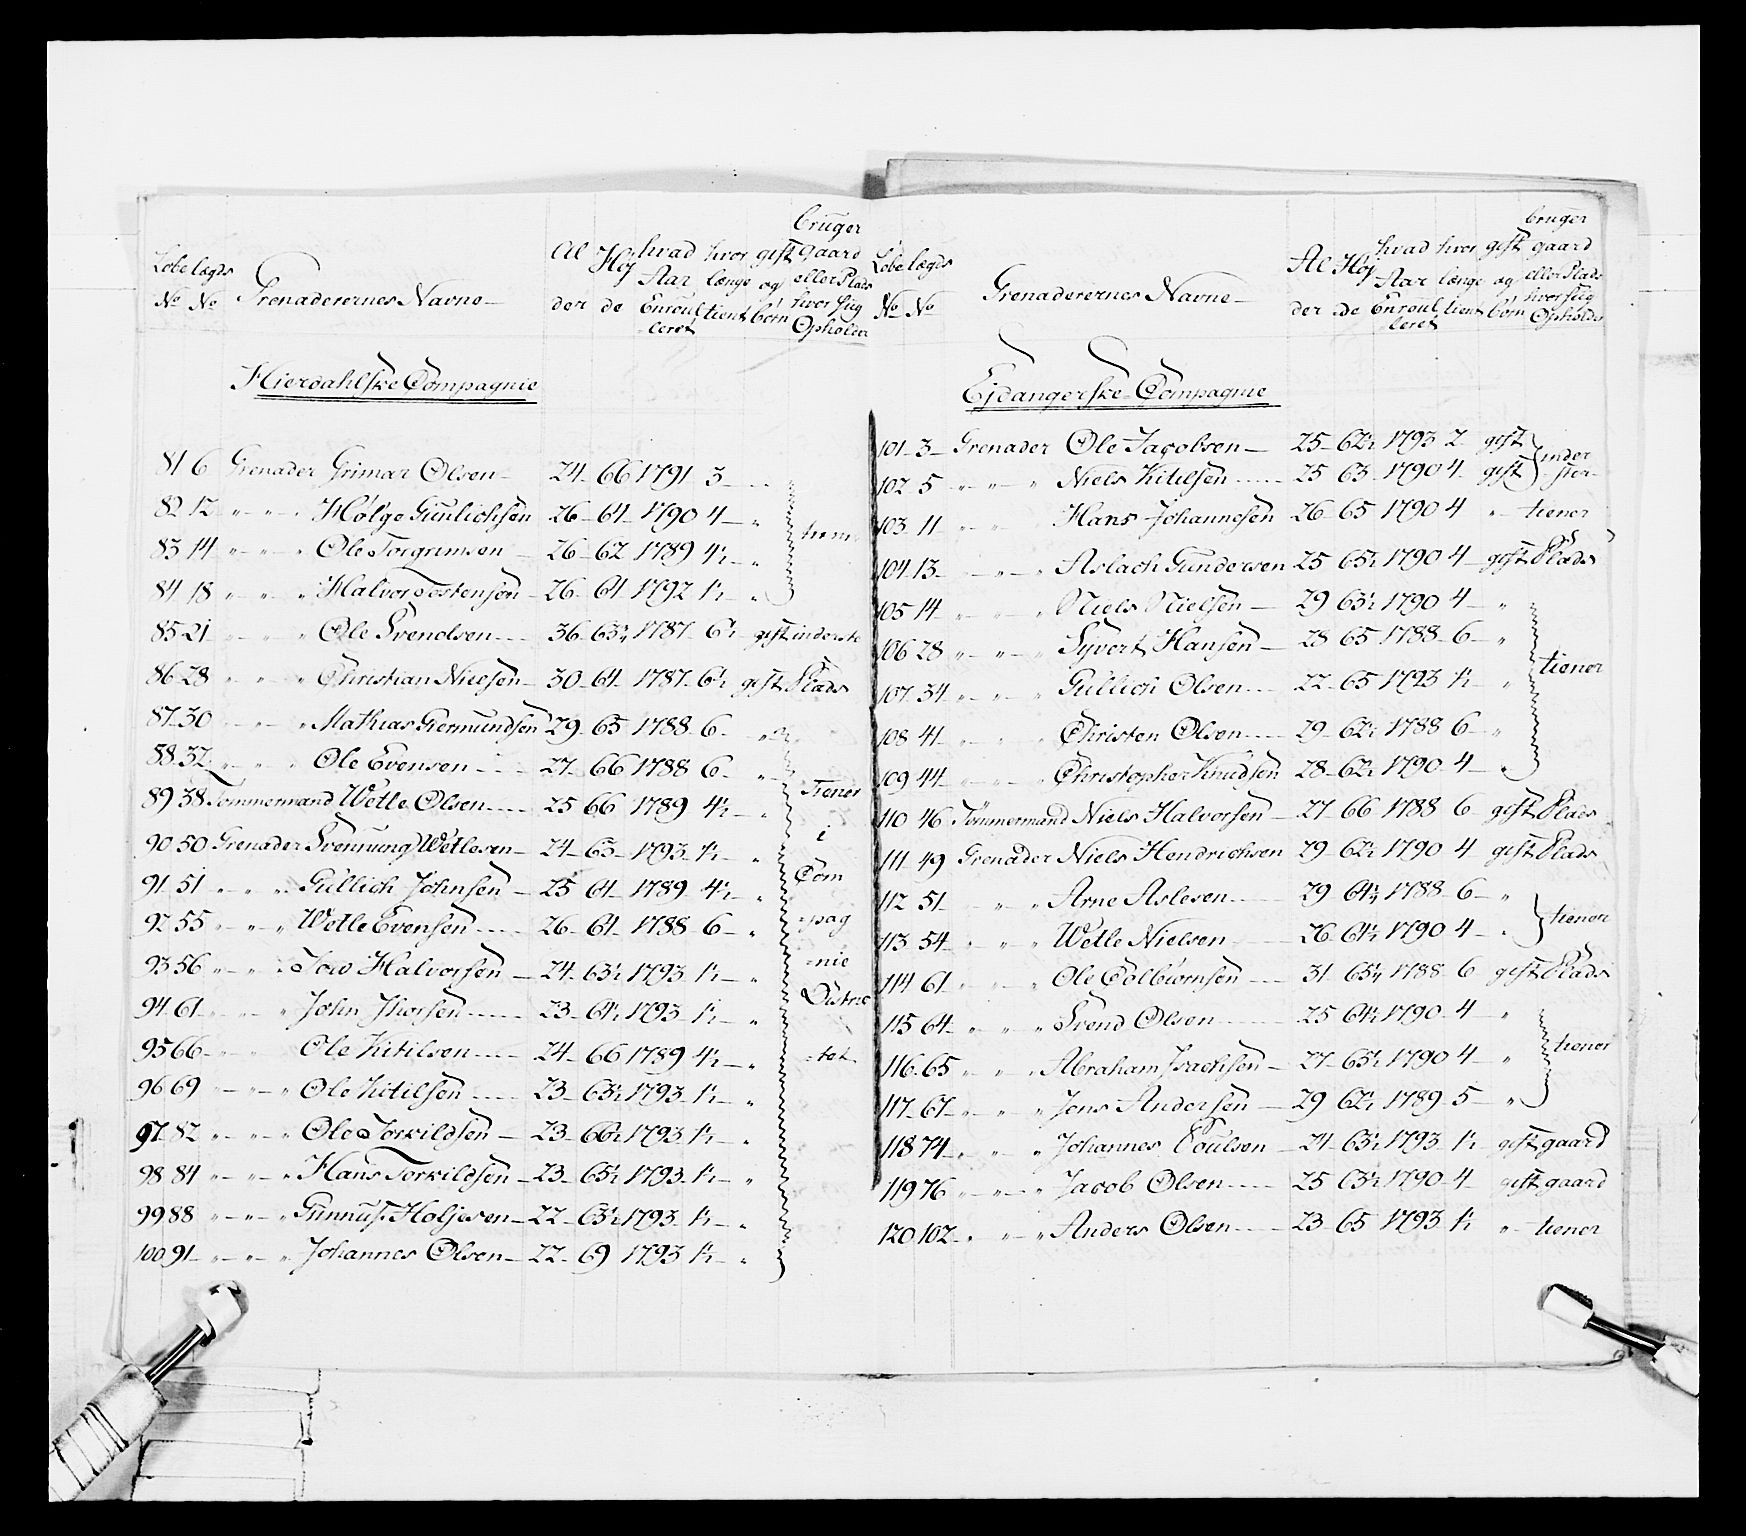 Løbe No lægds No Grenaderernes Navne Alder Højde hvad Aar Enroulleret hvor længe tient gift og børn bruger gaard eller Plads hvor sug Opholder
Hierdahlske Compagnie
81 6 Grenader Grimar Olsen 24 66 1791 3
82 12 " " " Holge Giulichsen 26 64 1790 4 "
83 14 " " " Ole Torgrimsen 26 62 1789 4½ " tiener
84 18 " " " Halvor Tostensen 26 64 1792 1½ "
85 21 " " " Ole Svendsen 36 63½ 1787 6½ gift inderste
86 28 " " " Christian Nielsen 30 64 1787 6½ gift Plads
87 30 " " " Mathias Giermundsen 29 65 1788 6 "
88 32 " " " Ole Evensen 27 66 1788 6 "
89 38 Tømmermand Wetle Olsen 25 66 1789 4½ " Tiener
90 50 Grenader Svennung Wetlesen 24 63 1793 1½ " i
91 51 " " " Gullich Johnsen 25 64 1789 4½ " Com
92 55 " " " Wetle Evensen 26 64 1788 6 " pag
93 56 " " " Tow Halvorsen 24 63½ 1793 1½ " nie
94 61 " " " John Jhorsen 23 64½ 1793 1½ " Distric
95 66 " " Ole Kitilsen 24 66 1789 4½ " tet
96 69 " " " Ole Kitilsen 23 63½ 1793 1½ "
97 82 " " " Ole Torkildsen 23 66½ 1793 1½ "
98 84 " " " Hans Torkildsen 23 65½ 1793 1½ "
99 88 " " " Gunnuf Holjesen 22 63½ 1793 1½ "
100 91 " " " Johannes Olsen 22 69 1793 1½ "
Løbe No lægds No Grenaderernes Navne Alder Højde hvad Aar Enroulleret hvor længe tient gift og børn bruger gaard eller Plads hvor sug Opholder
Ejdangerske Compagnie
101 3 Grenader Ole Jacobsen 25 62½ 1793 2 gift inder
102 5 " " " Niels Kitilsen 25 63 1790 4 gift ster
103 11 " " Hans Johannesen 26 65 1790 4 " tiener
104 13 " " Aslach Gundersen 25 65½ 1790 4 gift Plads
105 14 " " " Niels Nielsen 29 63½ 1790 4 "
106 28 " " " Syvert Hansen 28 65 1788 6 "
107 34 " " " Gullich Olsen 22 65 1793 1½ " tiener
108 41 " " " Christen Olsen 29 62½ 1788 6 "
109 44 " " " Christopher Knudsen 28 62½ 1790 4 "
110 46 Tømmermand Niels Halvorsen 27 66 1788 6 gift Plads
111 49 Grenader Niels Hendrichsen 29 62½ 1790 4 gift Plads
112 51 " " Arne Aslesen 29 64½ 1788 6 "
113 54 " " " Wetle Nielsen 26 64½ 1790 4 " tiener
114 61 " " " Ole Colbiornsen 31 65½ 1788 6 gift Plads
115 64 " " " Svend Olsen 25 64½ 1790 4 "
116 65 " " " Abraham Isachsen 27 65½ 1790 4 " tiener
117 67 " " " Jens Andersen 29 62½ 1789 5 "
118 74 " " " Johannes Poulsen 24 63½ 1793 1½ gift gaard
119 76 " " " Jacob Olsen 25 63½ 1790 4 gift gaard
120 102 " " " Anders Olsen 23 65 1793 1½ " tiener